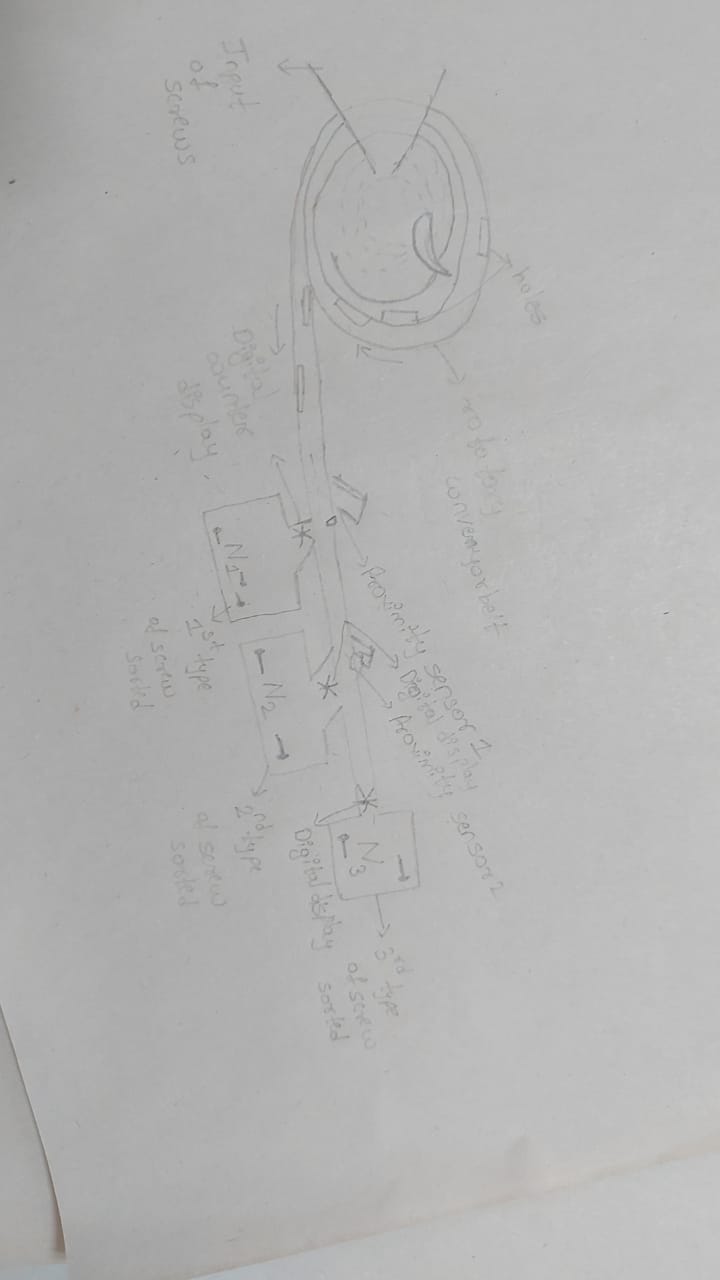 Input
of
screws
holes
rotatary
conveyor belt
Digital
counter
display
Proximity sensor 1
Digital display
Proximity sensor 2
N1
1st type
of screw
sorted
N2
2nd type
of screw
sorted
N3
Digital display
3rd type
of screw
sorted